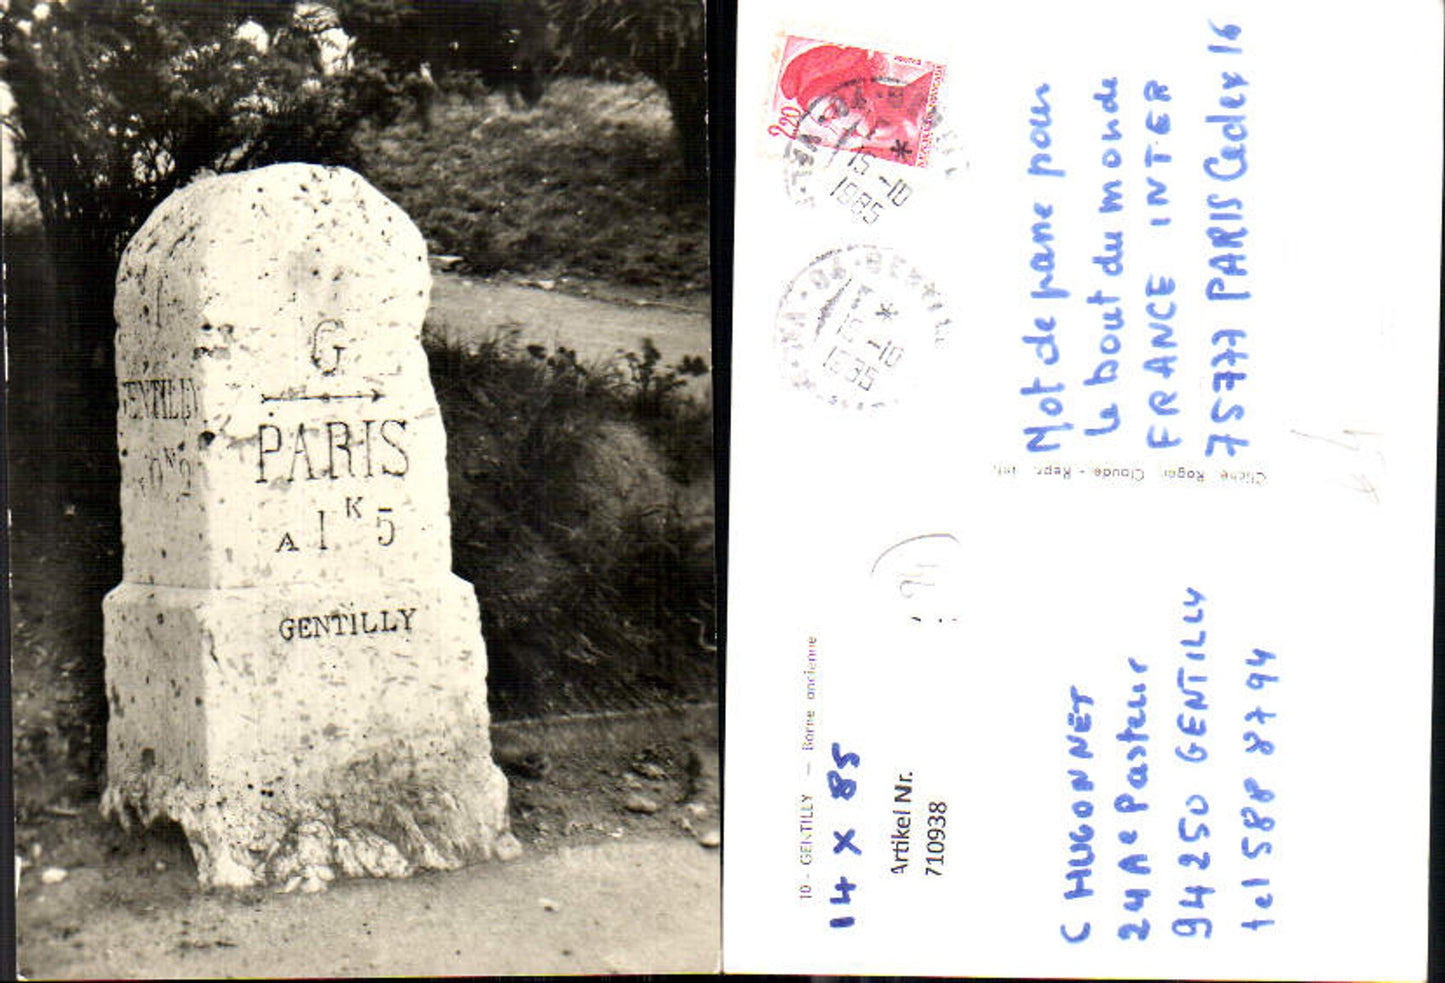 G
PARIS
A 1 K 5
GENTILLY
GENTILLY
N 2
2,20
15-10
1985
15-10
1985
Mot de passe pour
Le bout du monde
FRANCE INTER
75777 PARIS Cedex 16
Cliché Roger Claude - Repr. int.
10 - GENTILLY — Borne ancienne
14 X 85
Artikel Nr.
710938
C HUGONNET
24 Ae Pasteur
94250 GENTILLY
tel 588 87 94